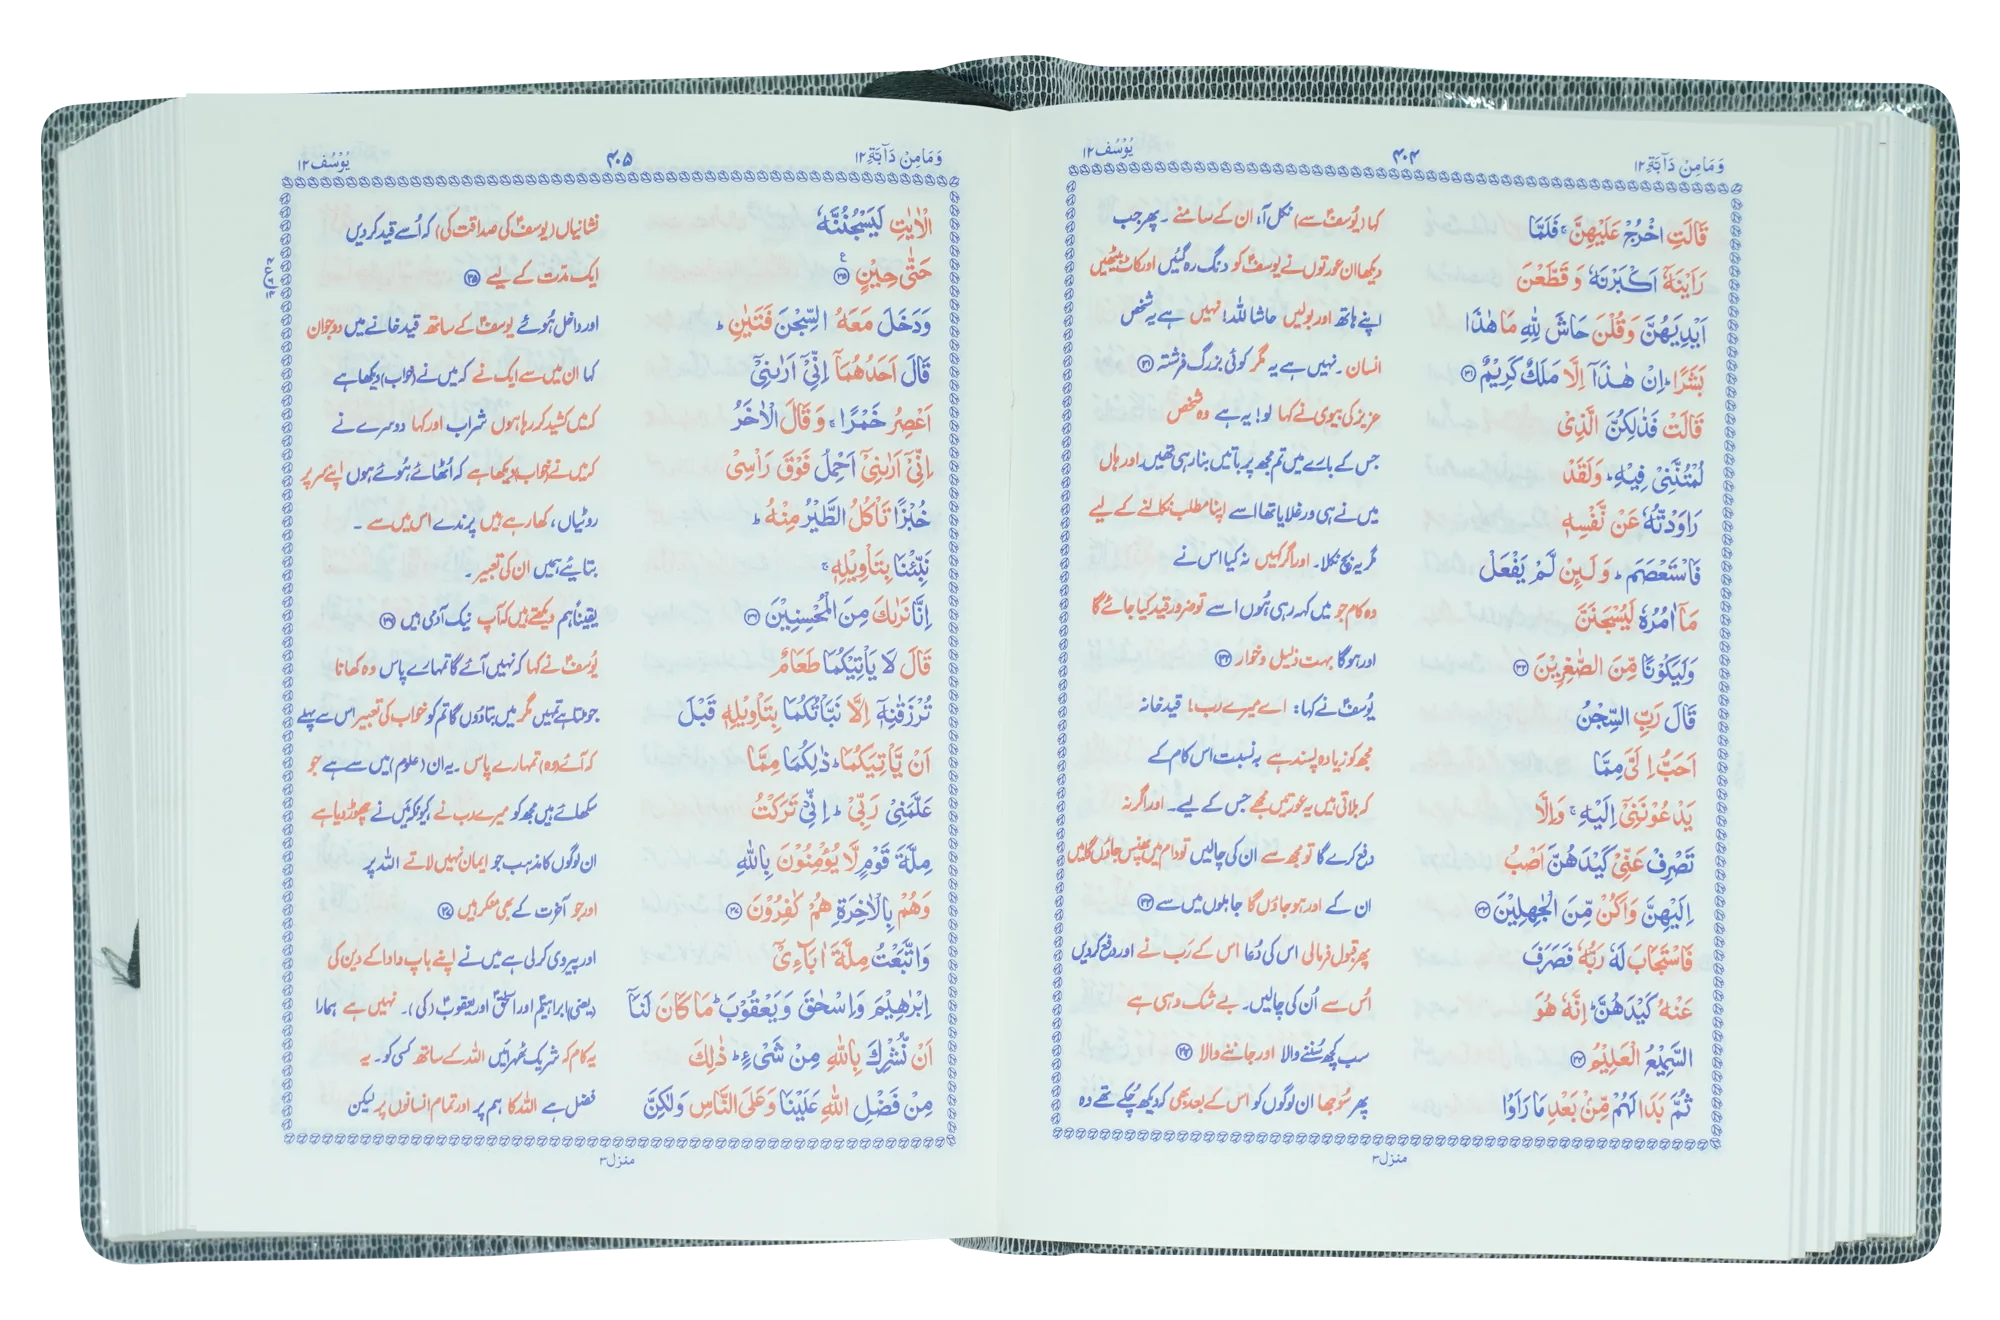 وَمَا مِنْ دَآبَّةٍ ١٢ ۴۰۴ يُوْسُف ١٢
قَالَتِ اخْرُجْ عَلَيْهِنَّ ۚ فَلَمَّا کہا (یُوسفؑ سے) نکل آ، ان کے سامنے ۔ پھر جب
رَاَيْنَهٗٓ اَكْبَرْنَهٗ وَ قَطَّعْنَ دیکھا ان عورتوں نے یوسفؑ کو دنگ رہ گئیں اور کاٹ بیٹھیں
اَيْدِيَهُنَّ وَقُلْنَ حَاشَ لِلّٰهِ مَا هٰذَا اپنے ہاتھ اور بولیں حاشا للہ! نہیں ہے یہ شخص
بَشَرًا ؕ اِنْ هٰذَآ اِلَّا مَلَكٌ كَرِيْمٌ ﴿۳۱﴾ انسان ۔ نہیں ہے یہ مگر کوئی بزرگ فرشتہ ﴿۳۱﴾
قَالَتْ فَذٰلِكُنَّ الَّذِىْ عزیز کی بیوی نے کہا لو! یہ ہے وہ شخص
لُمْتُنَّنِىْ فِيْهِ ؕ وَلَقَدْ جس کے بارے میں تم مجھ پر باتیں بنا رہی تھیں اور ہاں
رَاوَدْتُّهٗ عَنْ نَّفْسِهٖ میں نے ہی ورغلایا تھا اسے اپنا مطلب نکالنے کے لیے
فَاسْتَعْصَمَ ؕ وَ لَئِنْ لَّمْ يَفْعَلْ مگر یہ بچ نکلا ۔ اور اگر کہیں نہ کیا اس نے
مَآ اٰمُرُهٗ لَيُسْجَنَنَّ وہ کام جو میں کہہ رہی ہُوں اسے تو ضرور قید کیا جائے گا
وَلَيَكُوْنًا مِّنَ الصّٰغِرِيْنَ ﴿۳۲﴾ اور ہوگا بہت ذلیل و خوار ﴿۳۲﴾
قَالَ رَبِّ السِّجْنُ یُوسفؑ نے کہا: اے میرے رب! قید خانہ
اَحَبُّ اِلَىَّ مِمَّا مجھ کو زیادہ پسند ہے بہ نسبت اس کام کے
يَدْعُوْنَنِىْٓ اِلَيْهِ ۚ وَاِلَّا کہ بلاتی ہیں یہ عورتیں مجھے جس کے لیے ۔ اور اگر نہ
تَصْرِفْ عَنِّىْ كَيْدَهُنَّ اَصْبُ دفع کرے گا تو مجھ سے ان کی چالیں تو دام میں پھنس جاؤں گا میں
اِلَيْهِنَّ وَاَكُنْ مِّنَ الْجٰهِلِيْنَ ﴿۳۳﴾ ان کے اور ہو جاؤں گا جاہلوں میں سے ﴿۳۳﴾
فَاسْتَجَابَ لَهٗ رَبُّهٗ فَصَرَفَ پھر قبول فرمالی اس کی دُعا اس کے رَب نے اور دفع کر دیں
عَنْهُ كَيْدَهُنَّ ؕ اِنَّهٗ هُوَ اُس سے اُن کی چالیں۔ بے شک وہی ہے
السَّمِيْعُ الْعَلِيْمُ ﴿۳۴﴾ سب کچھ سُننے والا اور جاننے والا ﴿۳۴﴾
ثُمَّ بَدَا لَهُمْ مِّنْۢ بَعْدِ مَا رَاَوُا پھر سُوجھا ان لوگوں کو اس کے بعد بھی کہ دیکھ چُکے تھے وہ
منزل ٣
وَمَا مِنْ دَآبَّةٍ ١٢ ۴۰۵ يُوْسُف ١٢
الْاٰيٰتِ لَيَسْجُنُنَّهٗ نشانیاں (یوسفؑ کی صداقت کی) کہ اُسے قید کردیں
حَتّٰى حِيْنٍ ﴿۳۵﴾ ع ایک مدّت کے لیے ﴿۳۵﴾
وَدَخَلَ مَعَهُ السِّجْنَ فَتَيٰنِ ؕ اور داخل ہُوئے یوسفؑ کے ساتھ قید خانے میں دو جوان
قَالَ اَحَدُهُمَآ اِنِّىْٓ اَرٰىنِىْٓ کہا ان میں سے ایک نے کہ میں نے (خواب) دیکھا ہے
اَعْصِرُ خَمْرًا ۚ وَ قَالَ الْاٰخَرُ کہ میں کشید کر رہا ہوں شراب اور کہا دوسرے نے
اِنِّىْٓ اَرٰىنِىْٓ اَحْمِلُ فَوْقَ رَاْسِىْ کہ میں نے (خواب) دیکھا ہے کہ اُٹھائے ہُوئے ہوں اپنے سر پر
خُبْزًا تَاْكُلُ الطَّيْرُ مِنْهُ ؕ روٹیاں، کھا رہے ہیں پرندے اس میں سے ۔
نَبِّئْنَا بِتَاْوِيْلِهٖ ۚ بتائیے ہمیں ان کی تعبیر ۔
اِنَّا نَرٰىكَ مِنَ الْمُحْسِنِيْنَ ﴿۳۶﴾ یقیناً ہم دیکھتے ہیں کہ آپ نیک آدمی ہیں ﴿۳۶﴾
قَالَ لَا يَاْتِيْكُمَا طَعَامٌ یُوسفؑ نے کہا کہ نہیں آئے گا تمہارے پاس وہ کھانا
تُرْزَقٰنِهٖٓ اِلَّا نَبَّاْتُكُمَا بِتَاْوِيْلِهٖ قَبْلَ جو ملتا ہے تمہیں مگر میں بتادوں گا تم کو خواب کی تعبیر اس سے پہلے
اَنْ يَّاْتِيَكُمَا ؕ ذٰلِكُمَا مِمَّا کہ آئے (وہ) تمہارے پاس ۔ یہ ان (علوم) میں سے ہے جو
عَلَّمَنِىْ رَبِّىْ ؕ اِنِّىْ تَرَكْتُ سکھائے ہیں مجھ کو میرے رب نے کیونکہ میں نے چھوڑ دیا ہے
مِلَّةَ قَوْمٍ لَّا يُؤْمِنُوْنَ بِاللّٰهِ ان لوگوں کا مذہب جو ایمان نہیں لاتے اللہ پر
وَهُمْ بِالْاٰخِرَةِ هُمْ كٰفِرُوْنَ ﴿۳۷﴾ اور جو آخرت کے بھی منکر ہیں ﴿۳۷﴾
وَاتَّبَعْتُ مِلَّةَ اٰبَآءِىْٓ اور پیروی کر لی ہے میں نے اپنے باپ دادا کے دین کی
اِبْرٰهِيْمَ وَاِسْحٰقَ وَيَعْقُوْبَ ؕ مَا كَانَ لَنَآ (یعنی) ابراہیمؑ اور اسحٰقؑ اور یعقوبؑ (کی)۔ نہیں ہے ہمارا
اَنْ نُّشْرِكَ بِاللّٰهِ مِنْ شَىْءٍ ؕ ذٰلِكَ یہ کام کہ شریک ٹھہرائیں اللہ کے ساتھ کسی کو۔ یہ
مِنْ فَضْلِ اللّٰهِ عَلَيْنَا وَعَلَى النَّاسِ وَلٰكِنَّ فضل ہے اللہ کا ہم پر اور تمام انسانوں پر لیکن
منزل ٣